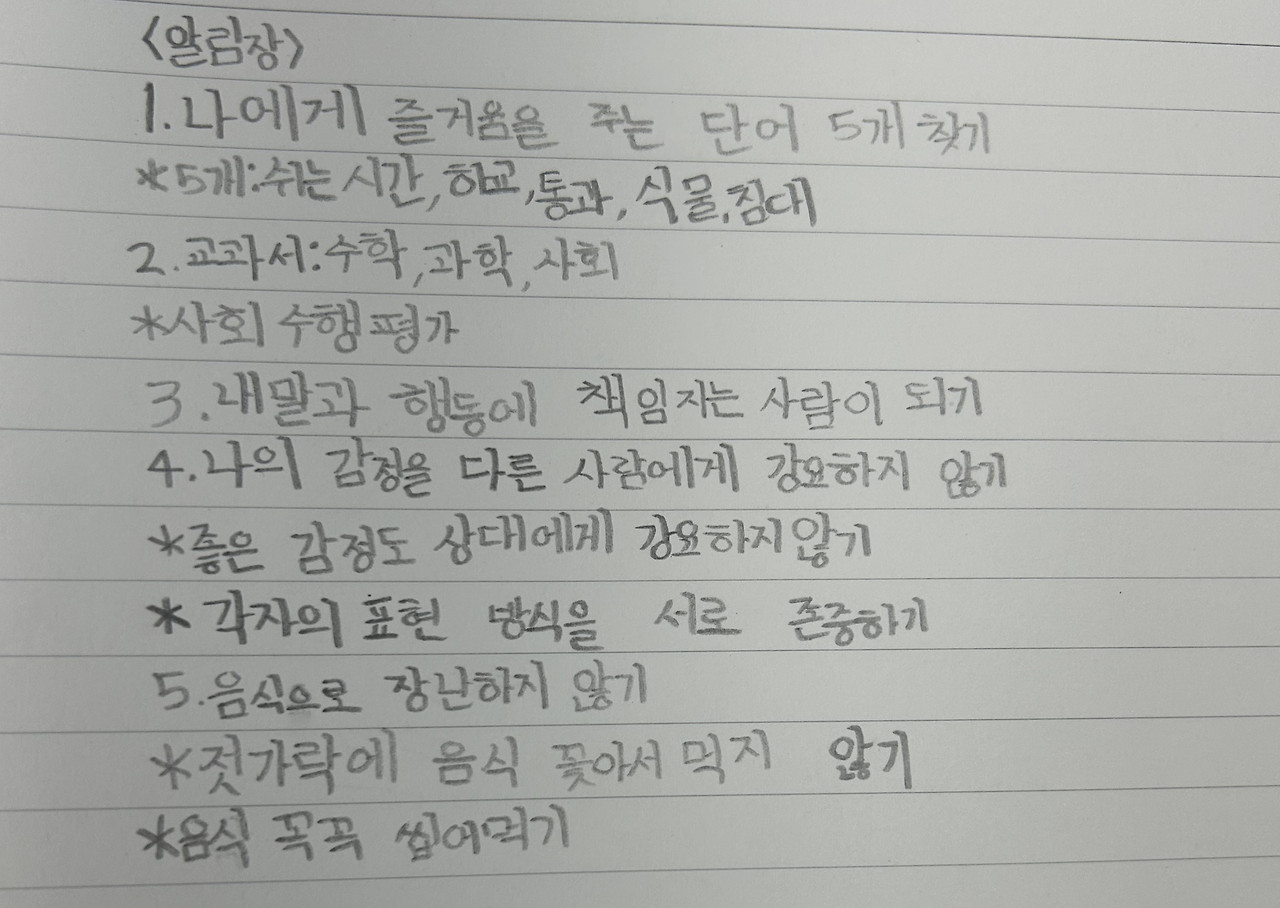 <알림장>
1.나에게 즐거움을 주는 단어 5개 찾기
*5개:쉬는 시간, 하교, 통과, 식물, 침대
2.교과서:수학, 과학, 사회
*사회 수행평가
3.내말과 행동에 책임지는 사람이 되기
4.나의 감정을 다른 사람에게 강요하지 않기
*좋은 감정도 상대에게 강요하지 않기
* 각자의 표현 방식을 서로 존중하기
5.음식으로 장난하지 않기
*젓가락에 음식 꽃아서 먹지 않기
*음식 꼭꼭 씹어먹기